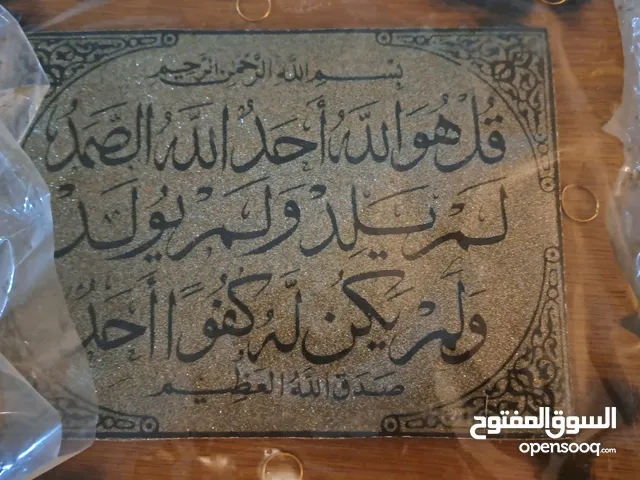 بِسْمِ اللهِ الرَّحْمٰنِ الرَّحِيمِ
قُلْ هُوَ اللهُ أَحَدٌ اللهُ الصَّمَدُ
لَمْ يَلِدْ وَلَمْ يُولَدْ
وَلَمْ يَكُنْ لَهُ كُفُوًا أَحَدٌ
صَدَقَ اللهُ العَظِيمُ
السوق المفتوح
opensooq.com